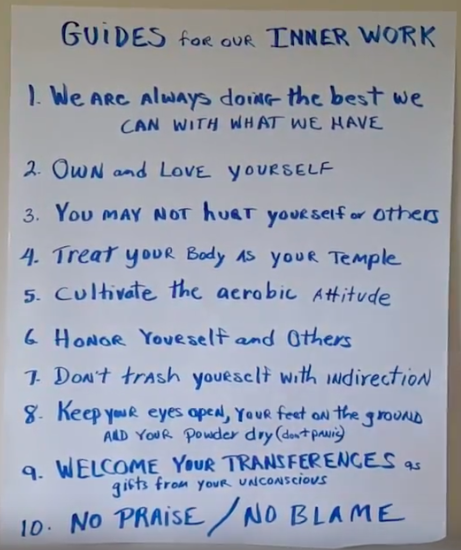 GUIDES for our INNER WORK
1. We are always doing the best we
can with what we have
2. Own and Love yourself
3. You may not hurt yourself or others
4. Treat your Body as your Temple
5. Cultivate the aerobic Attitude
6 Honor Yourself and Others
7. Don't trash yourself with indirection
8. Keep your eyes open, your feet on the ground
and your powder dry (don't panic)
9. WELCOME YOUR TRANSFERENCES as
gifts from your unconscious
10. NO PRAISE / NO BLAME